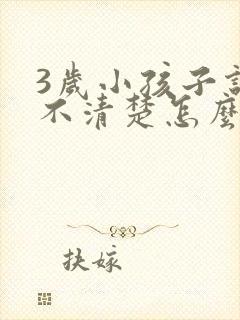 3歲小孩子
不清楚怎麼
扶嫁